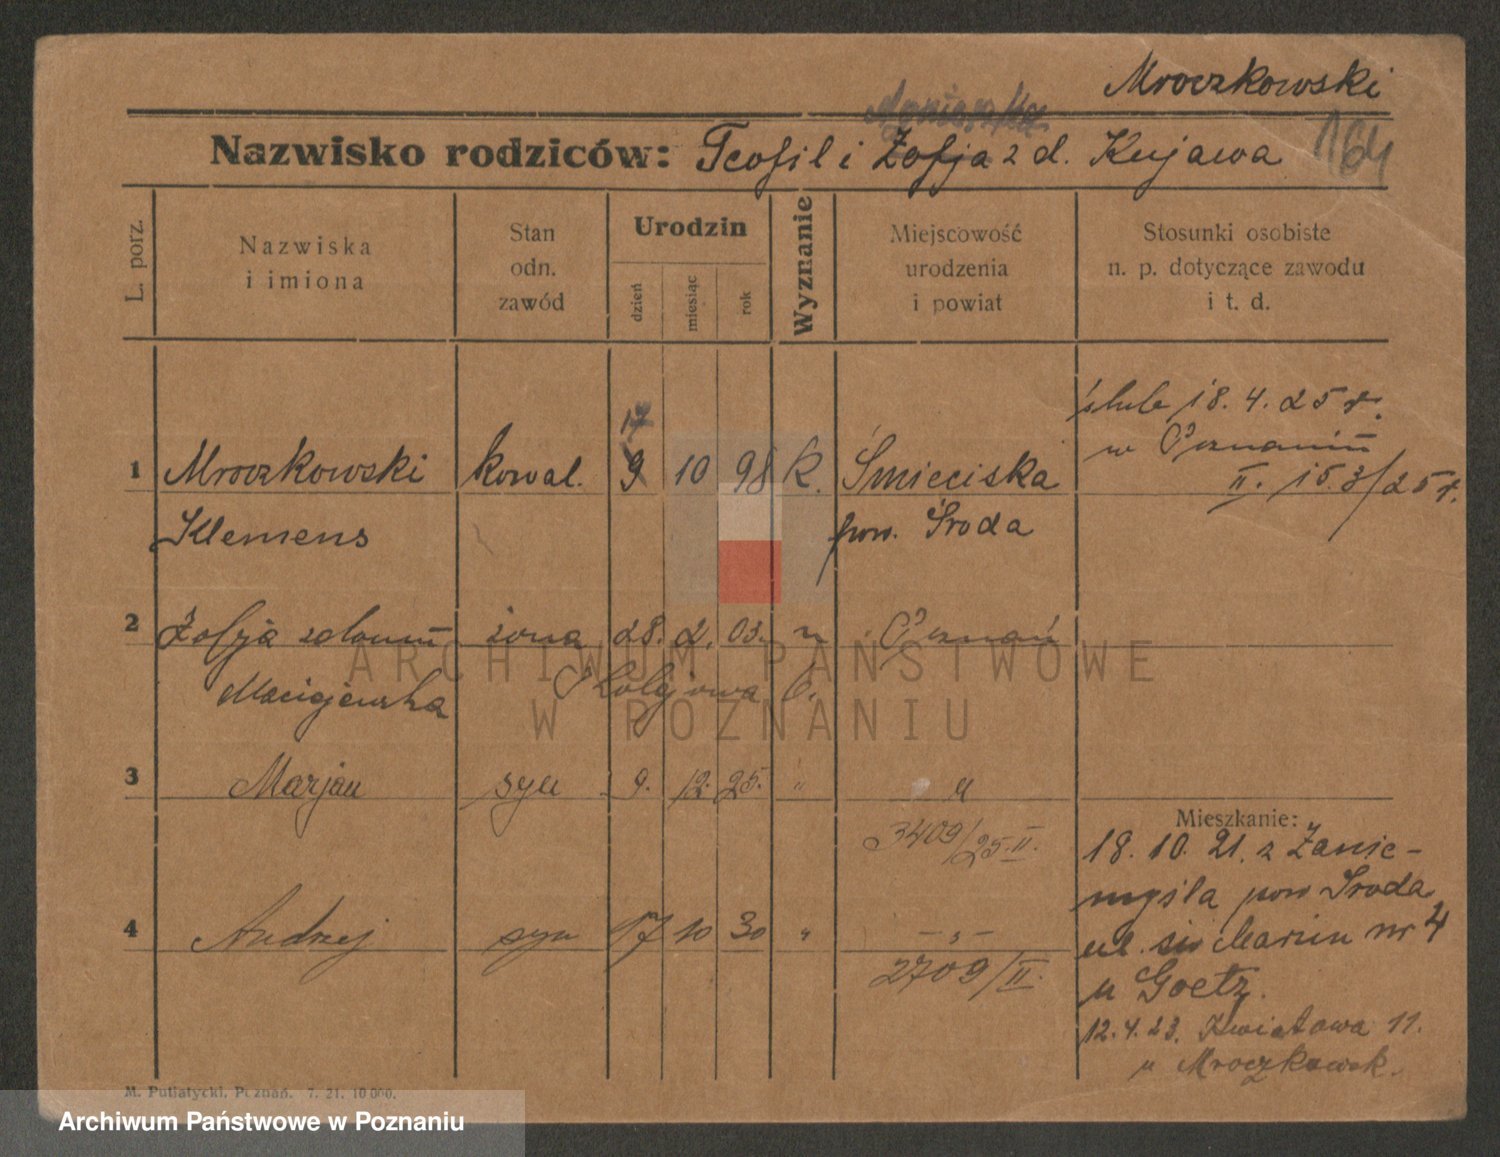 Mroczkowski
Agnieszka
Nazwisko rodziców: Teofil i Zofja z d. Kujawa 164
L. porz.
Nazwiska
i imiona
Stan
odn.
zawód
Urodzin
dzień
miesiąc
rok
Wyznanie
Miejscowość
urodzenia
i powiat
Stosunki osobiste
n. p. dotyczące zawodu
i t. d.
ślub 18. 4. 25 r.
w Poznaniu
II. 153/25 r.
17
1 Mroczkowski kowal. 9 10 98 k. Śmieciska
Klemens pow. Środa
2 Zofja z domu żona 28. 2. 03. Poznań
Maciejewska
3 Marjan syn 9. 12. 25. " "
3409/25. II.
4 Andrzej syn 17 10 30 " - " -
2709/II.
Mieszkanie:
18. 10. 21. z Zanie-
myśla pow Środa
ul. św Marcin nr 4
u Goetz.
12. 4. 23. Kwiatowa 11.
u Mroczkowsk.
M. Putiatycki, Poznań. 7. 21. 10 000.
ARCHIWUM PAŃSTWOWE
W POZNANIU
Archiwum Państwowe w Poznaniu